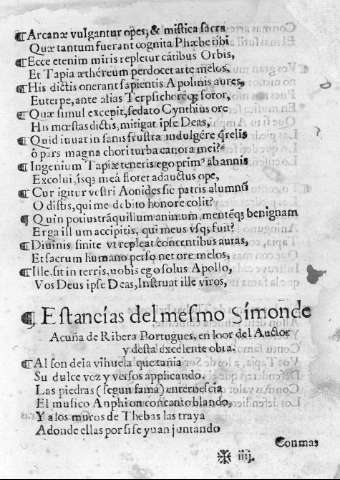 ¶Arcanæ vulgantur opes, & mistica sacra
Quæ tantum fuerant cognita Phæbe tibi
¶Ecce etenim miris repletur cātibus Orbis,
Et Tapia æthereum perdocet arte melos,
¶His dictis onerant sapientis Apolinis aures,
Euterpe, ante alias Terpsichoreq; soror,
¶Quæ simul excepit, sedato Cynthius ore
His mœstas dictis, mitigat ipse Deas,
¶Quid iuuat in sanis frustra indulgêre q̃relis
ô pars magna chori turba canora mei?
¶Ingenium Tapiæ teneris ego prim⁹ ab annis
Excolui, isq; meâ floret adauctus ope,
¶Cur igitur vestri Aonides sic patris alumnū
O distis, qui me debito honore colit?
¶Quin potius trāquillum animum mentéq; benignam
Erga illum accipitis, qui meus vsq; fuit?
¶Diuinis sinite vt repleat concentibus auras,
Et sacrum humano personet ore melos,
¶Ille, sit in terris, uobis ego solus Apollo,
Vos Deus ipse Deas, Instruat ille viros,
¶Estancias del mesmo Simon de
Acuña de Ribera Portugues, en loor del Auctor
y desta excelente obra.
¶Al son dela vihuela que tañia
Su dulce voz y versos applicando.
Las piedras (segun fama) enternescia
El musico Anphion con canto blando,
Y a los muros de Thebas las traya
Adonde ellas por si se yuan juntando
Con mas
✠ iiij.